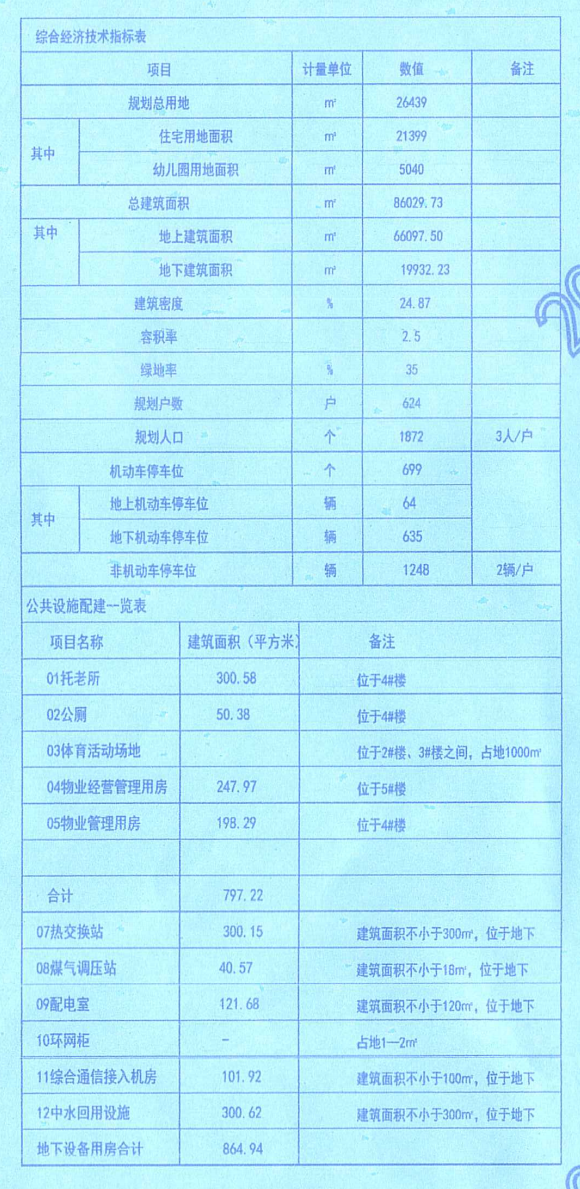 综合经济技术指标表
项目 计量单位 数值 备注
规划总用地 ㎡ 26439
其中 住宅用地面积 ㎡ 21399
幼儿园用地面积 ㎡ 5040
总建筑面积 ㎡ 86029.73
其中 地上建筑面积 ㎡ 66097.50
地下建筑面积 ㎡ 19932.23
建筑密度 % 24.87
容积率 2.5
绿地率 % 35
规划户数 户 624
规划人口 个 1872 3人/户
机动车停车位 个 699
其中 地上机动车停车位 辆 64
地下机动车停车位 辆 635
非机动车停车位 辆 1248 2辆/户
公共设施配建一览表
项目名称 建筑面积（平方米） 备注
01托老所 300.58 位于4#楼
02公厕 50.38 位于4#楼
03体育活动场地 位于2#楼、3#楼之间，占地1000㎡
04物业经营管理用房 247.97 位于5#楼
05物业管理用房 198.29 位于4#楼
合计 797.22
07热交换站 300.15 建筑面积不小于300㎡，位于地下
08煤气调压站 40.57 建筑面积不小于18㎡，位于地下
09配电室 121.68 建筑面积不小于120㎡，位于地下
10环网柜 - 占地1—2㎡
11综合通信接入机房 101.92 建筑面积不小于100㎡，位于地下
12中水回用设施 300.62 建筑面积不小于300㎡，位于地下
地下设备用房合计 864.94